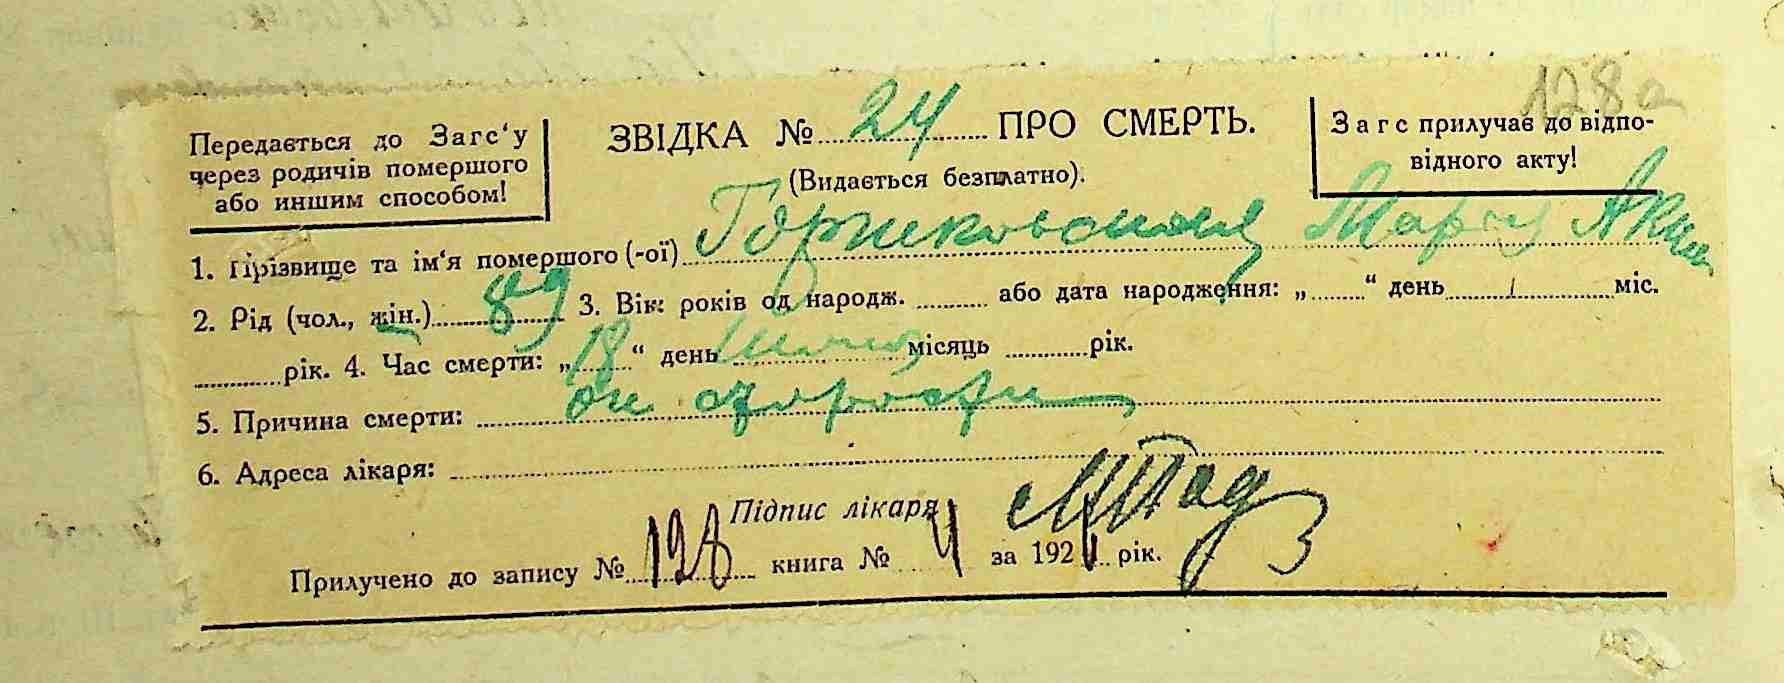 128а
Передається до Загс'у
через родичів помершого
або иншим способом!
ЗВІДКА № 24 ПРО СМЕРТЬ.
(Видається безплатно).
Загс прилучає до відпо-
відного акту!
1. Прізвище та ім'я помершого (-ої) Марту
2. Рід (чол., жін.) 89 3. Вік: років од народж. або дата народження: „ “ день міс.
рік. 4. Час смерти: „18“ день місяць рік.
5. Причина смерти: от старости
6. Адреса лікаря:
Підпис лікаря
Прилучено до запису № 128 книга № 4 за 192 рік.